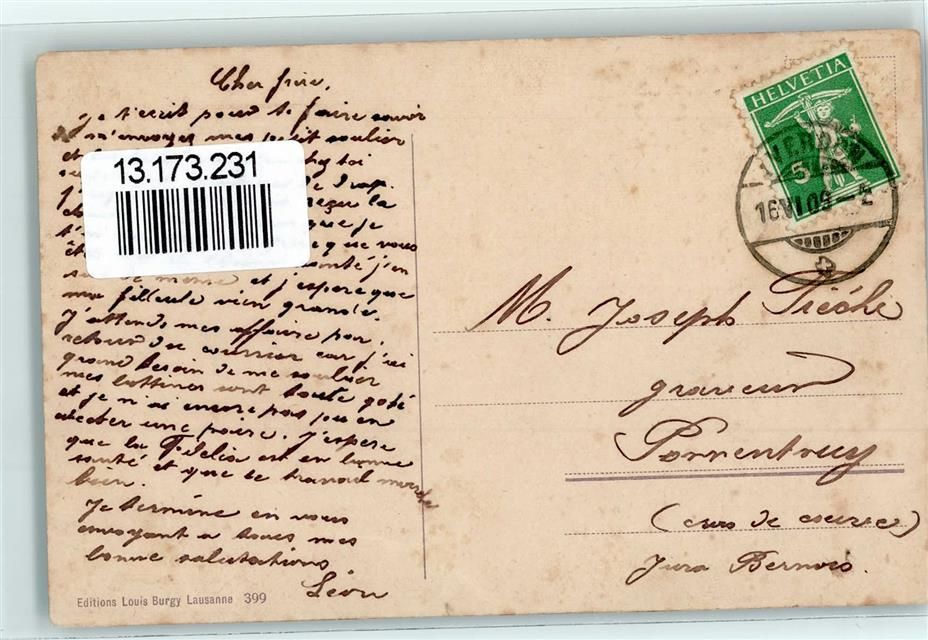 Cher frère,
Je t'écrit pour te faire savoir
m'envoyez mes petit soulier
et
chez toi
13.173.231
drap.
reçue la
que je
que vous
santé j'en
meme et j'espere que
ma filleule vien grande.
J'attends mes affaire par
retour de courrier car j'ai
grand besoin de me soulier
mes bottines sont toute gaté
et je n'ai encore pas pu en
acheter une paire. J'espere
que la Fidélia est en bonne
santé et que le travail marche
bien.
Je termine en vous
envoyant a tous mes
bonne salutations
Léon
Editions Louis Burgy Lausanne 399
HELVETIA
5
16 VI 09 - 5
M. Joseph
graveur
Porrentruy
(
Jura Bernois.